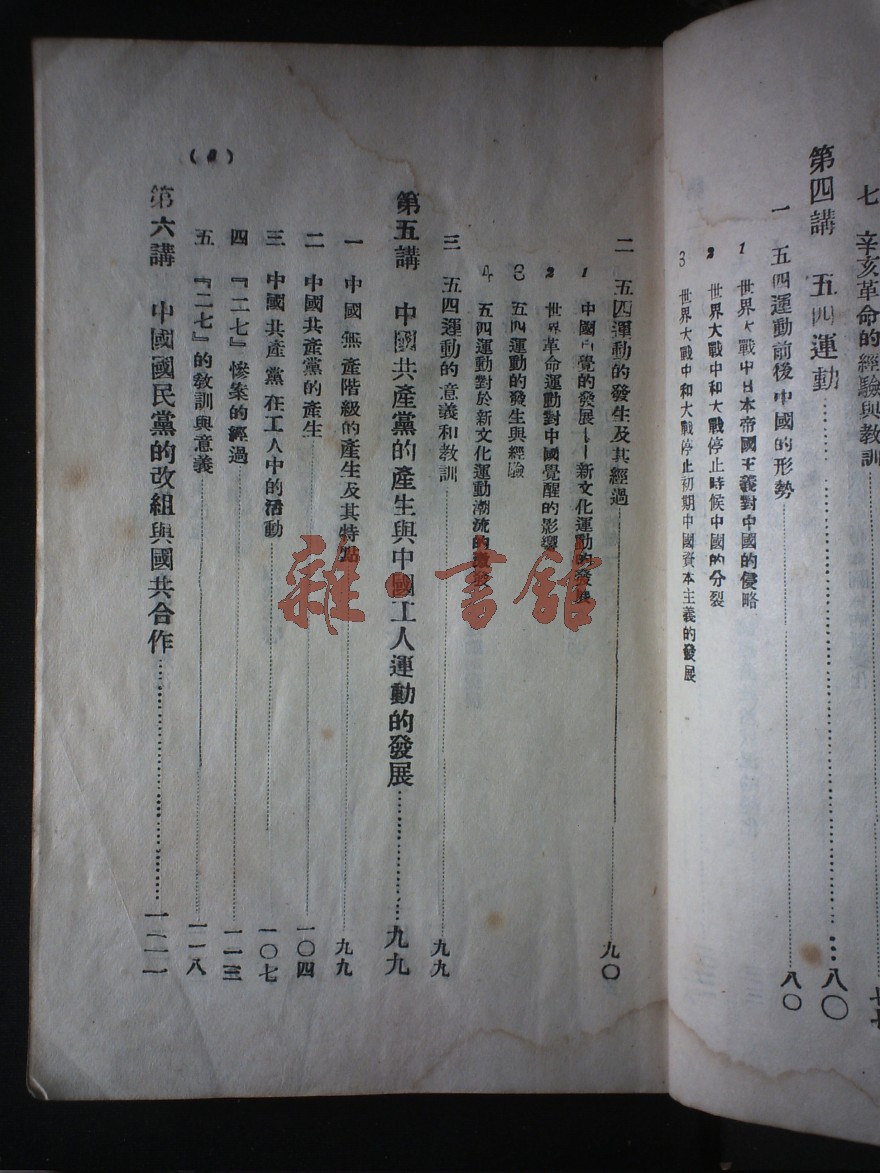 七 辛亥革命的經驗與教訓 七七
第四講 五四運動 八〇
一 五四運動前後中國的形勢 八〇
1 世界大戰中日本帝國主義對中國的侵略
2 世界大戰中和大戰停止時候中國的分裂
3 世界大戰中和大戰停止初期中國資本主義的發展
二 五四運動的發生及其經過 九〇
1 中國自覺的發展——新文化運動的發展
2 世界革命運動對中國覺醒的影響
3 五四運動的發生與經驗
4 五四運動對於新文化運動潮流的激發
三 五四運動的意義和教訓 九九
第五講 中國共產黨的產生與中國工人運動的發展 九九
一 中國無產階級的產生及其特點 九九
二 中國共產黨的產生 一〇四
三 中國共產黨在工人中的活動 一〇七
四 『二七』慘案的經過 一一三
五 『二七』的教訓與意義 一一八
第六講 中國國民黨的改組與國共合作 一二一
雜·書館